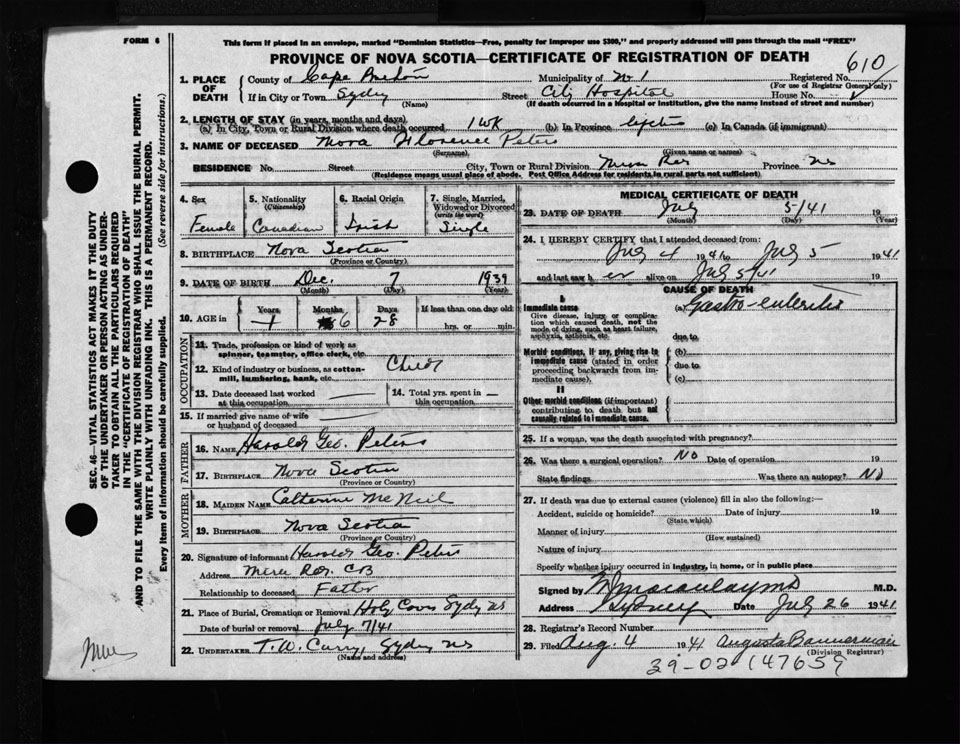 FORM 6
This form if placed in an envelope, marked "Dominion Statistics—Free, penalty for improper use $300," and properly addressed will pass through the mail "FREE"
PROVINCE OF NOVA SCOTIA—CERTIFICATE OF REGISTRATION OF DEATH
610
1. PLACE OF DEATH
County of Cape Breton Municipality of No 1 Registered No.
(For use of Registrar General only)
If in City or Town Sydney Street City Hospital House No.
(Name) (If death occurred in a Hospital or Institution, give the name instead of street and number)
2. LENGTH OF STAY (in years, months and days)
(a) In City, Town or Rural Division where death occurred 1 wk (b) In Province (c) In Canada (if immigrant)
3. NAME OF DECEASED Mora Florence Peters
(Surname) (Given name or names)
RESIDENCE No. Street City, Town or Rural Division Province NS
(Residence means usual place of abode. Post Office Address for residents in rural parts not sufficient)
4. Sex 5. Nationality (Citizenship) 6. Racial Origin 7. Single, Married, Widowed or Divorced (write the word)
Female Canadian Irish Single
8. BIRTHPLACE Nova Scotia
(Province or Country)
9. DATE OF BIRTH Dec. 7 1939
(Month) (Day) (Year)
10. AGE in Years Months Days If less than one day old
1 6 28 hrs. or min.
OCCUPATION
11. Trade, profession or kind of work as spinner, teamster, office clerk, etc.
12. Kind of industry or business, as cotton-mill, lumbering, bank, etc. Child
13. Date deceased last worked at this occupation
14. Total yrs. spent in this occupation
15. If married give name of wife or husband of deceased
FATHER
16. NAME Harold Geo. Peters
17. BIRTHPLACE Nova Scotia
(Province or Country)
MOTHER
18. MAIDEN NAME Catherine McNeil
19. BIRTHPLACE Nova Scotia
(Province or Country)
20. Signature of informant Harold Geo. Peters
Address Mira Rd. CB
Relationship to deceased Father
21. Place of Burial, Cremation or Removal Holy Cross Sydney NS
Date of burial or removal July 7/41
22. UNDERTAKER T.W. Curry, Sydney NS
(Name and address)
MEDICAL CERTIFICATE OF DEATH
23. DATE OF DEATH July 5/41 19
(Month) (Day) (Year)
24. I HEREBY CERTIFY that I attended deceased from:
July 4 1941 to July 5 1941
and last saw her alive on July 5/41 19
CAUSE OF DEATH
I
Immediate cause (a) Gastro-enteritis
Give disease, injury or complication which caused death, not the mode of dying, such as heart failure, asphyxia, asthenia, etc.
due to
Morbid conditions, if any, giving rise to immediate cause (stated in order proceeding backwards from immediate cause).
(b)
due to
(c)
II
Other morbid conditions (if important) contributing to death but not causally related to immediate cause.
25. If a woman, was the death associated with pregnancy?
26. Was there a surgical operation? No Date of operation 19
State findings Was there an autopsy? No
27. If death was due to external causes (violence) fill in also the following:—
Accident, suicide or homicide? Date of injury 19
(State which)
Manner of injury
(How sustained)
Nature of injury
Specify whether injury occurred in industry, in home, or in public place
Signed by Macaulay MD M.D.
Address Sydney Date July 26 1941
28. Registrar's Record Number
29. Filed Aug. 4 1941 Augusta Bannerman
(Division Registrar)
39-02 147659
SEC. 46—VITAL STATISTICS ACT MAKES IT THE DUTY
OF THE UNDERTAKER OR PERSON ACTING AS UNDER-
TAKER TO OBTAIN ALL THE PARTICULARS REQUIRED
IN THE "CERTIFICATE OF REGISTRATION OF DEATH"
AND TO FILE THE SAME WITH THE DIVISION REGISTRAR WHO SHALL ISSUE THE BURIAL PERMIT.
WRITE PLAINLY WITH UNFADING INK. THIS IS A PERMANENT RECORD.
Every item of information should be carefully supplied. (See reverse side for instructions.)